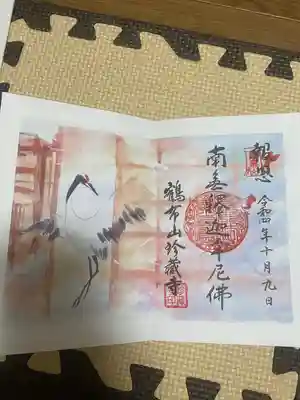 報恩
令和四年十月九日
南無釋迦牟尼佛
鶴布山珍蔵寺